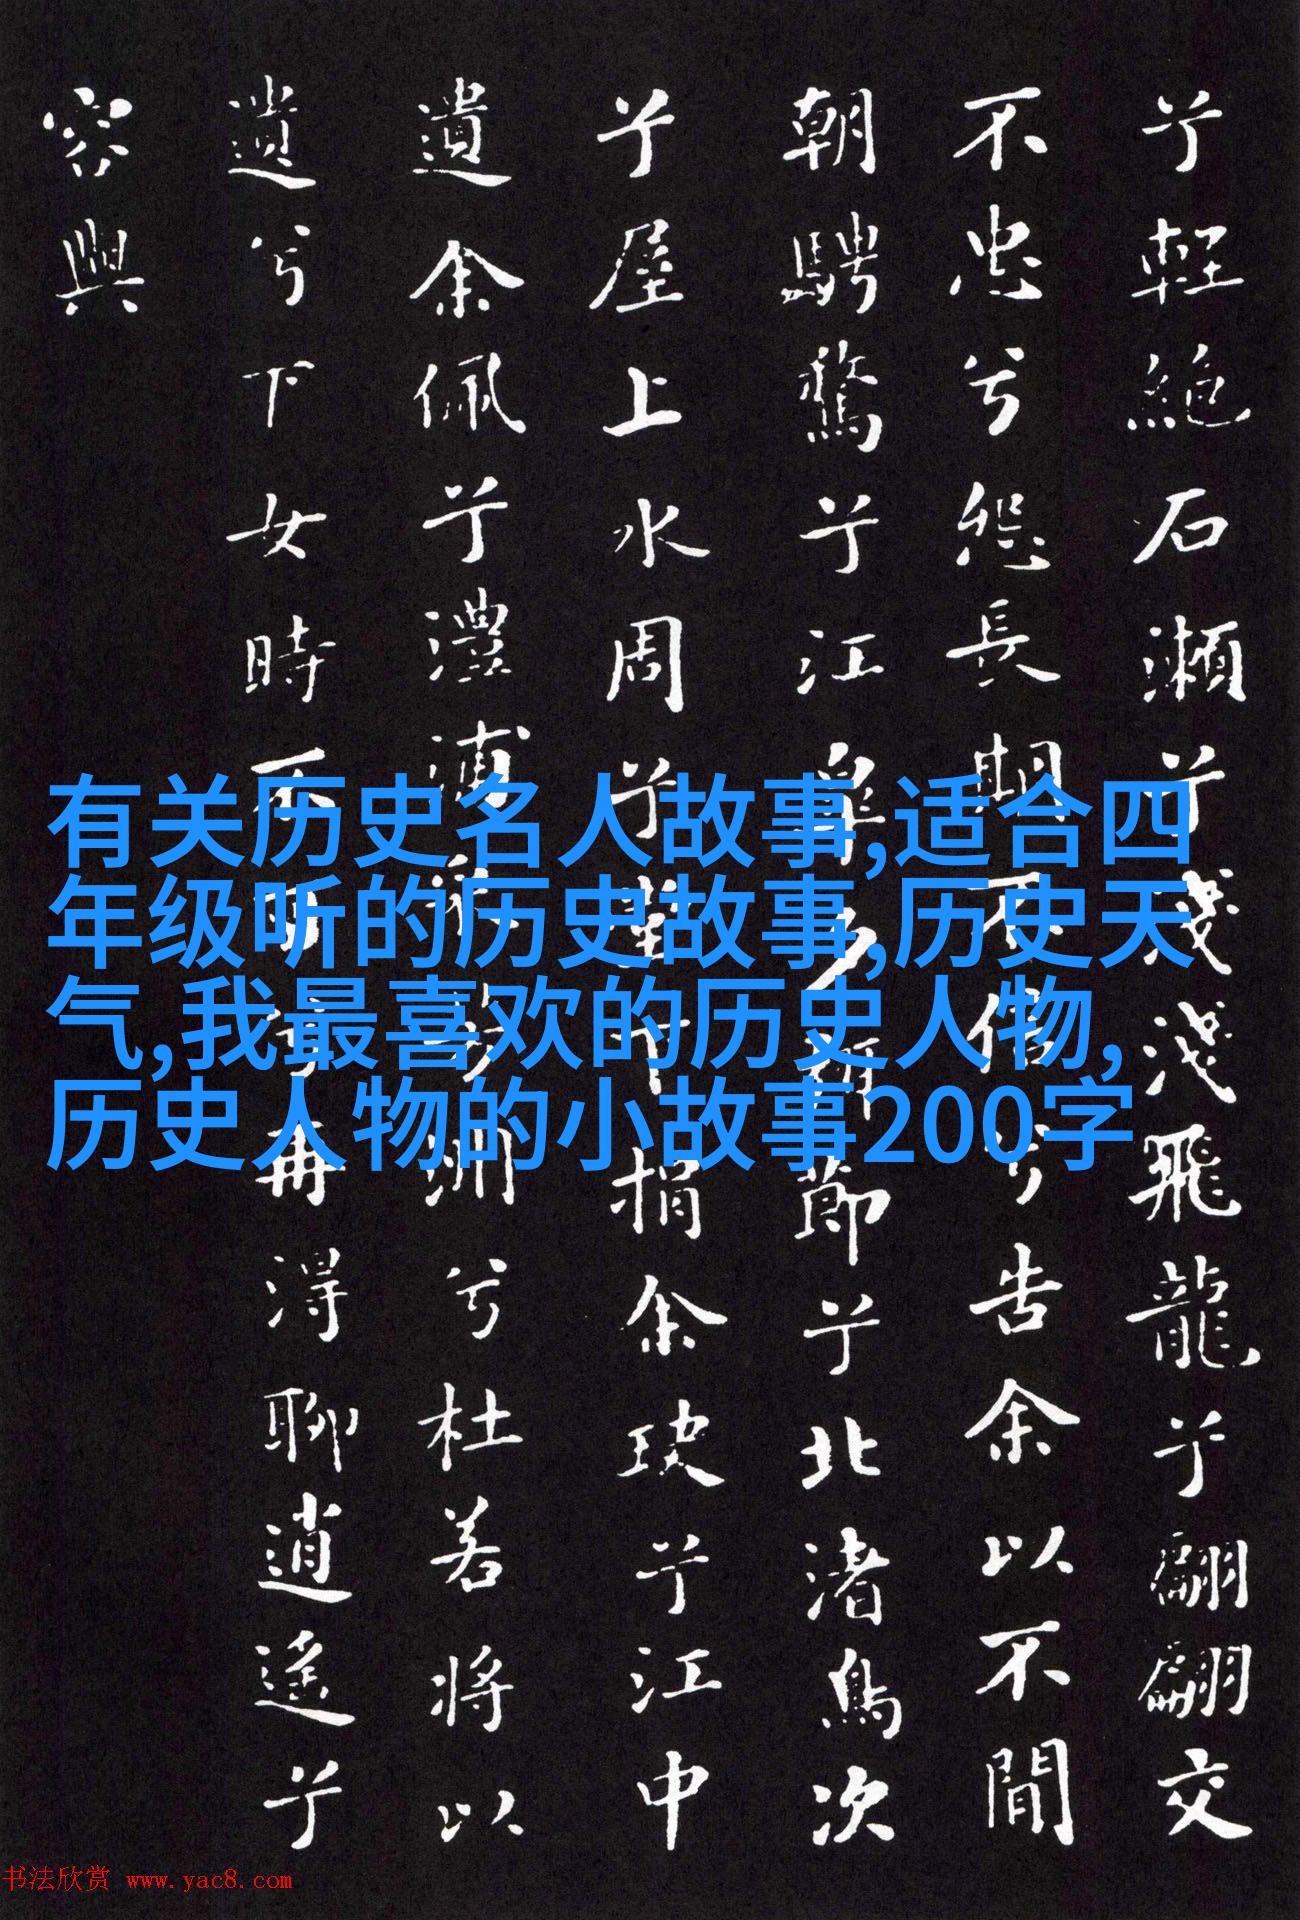 兮輕絕石瀨兮淺淺飛龍兮翩翩交
不忠兮怨長期不信兮告余以不閒
朝騁騖兮江皋夕弭節兮北渚鳥次
兮屋上水周兮堂下捐余玦兮江中
遺余佩兮澧浦采芳洲兮杜若將以
遺兮下女時不可兮再得聊逍遙兮
容與
有关历史名人故事,适合四
年级听的历史故事,历史天
气,我最喜欢的历史人物,
历史人物的小故事200字
书法欣赏 www.yac8.com